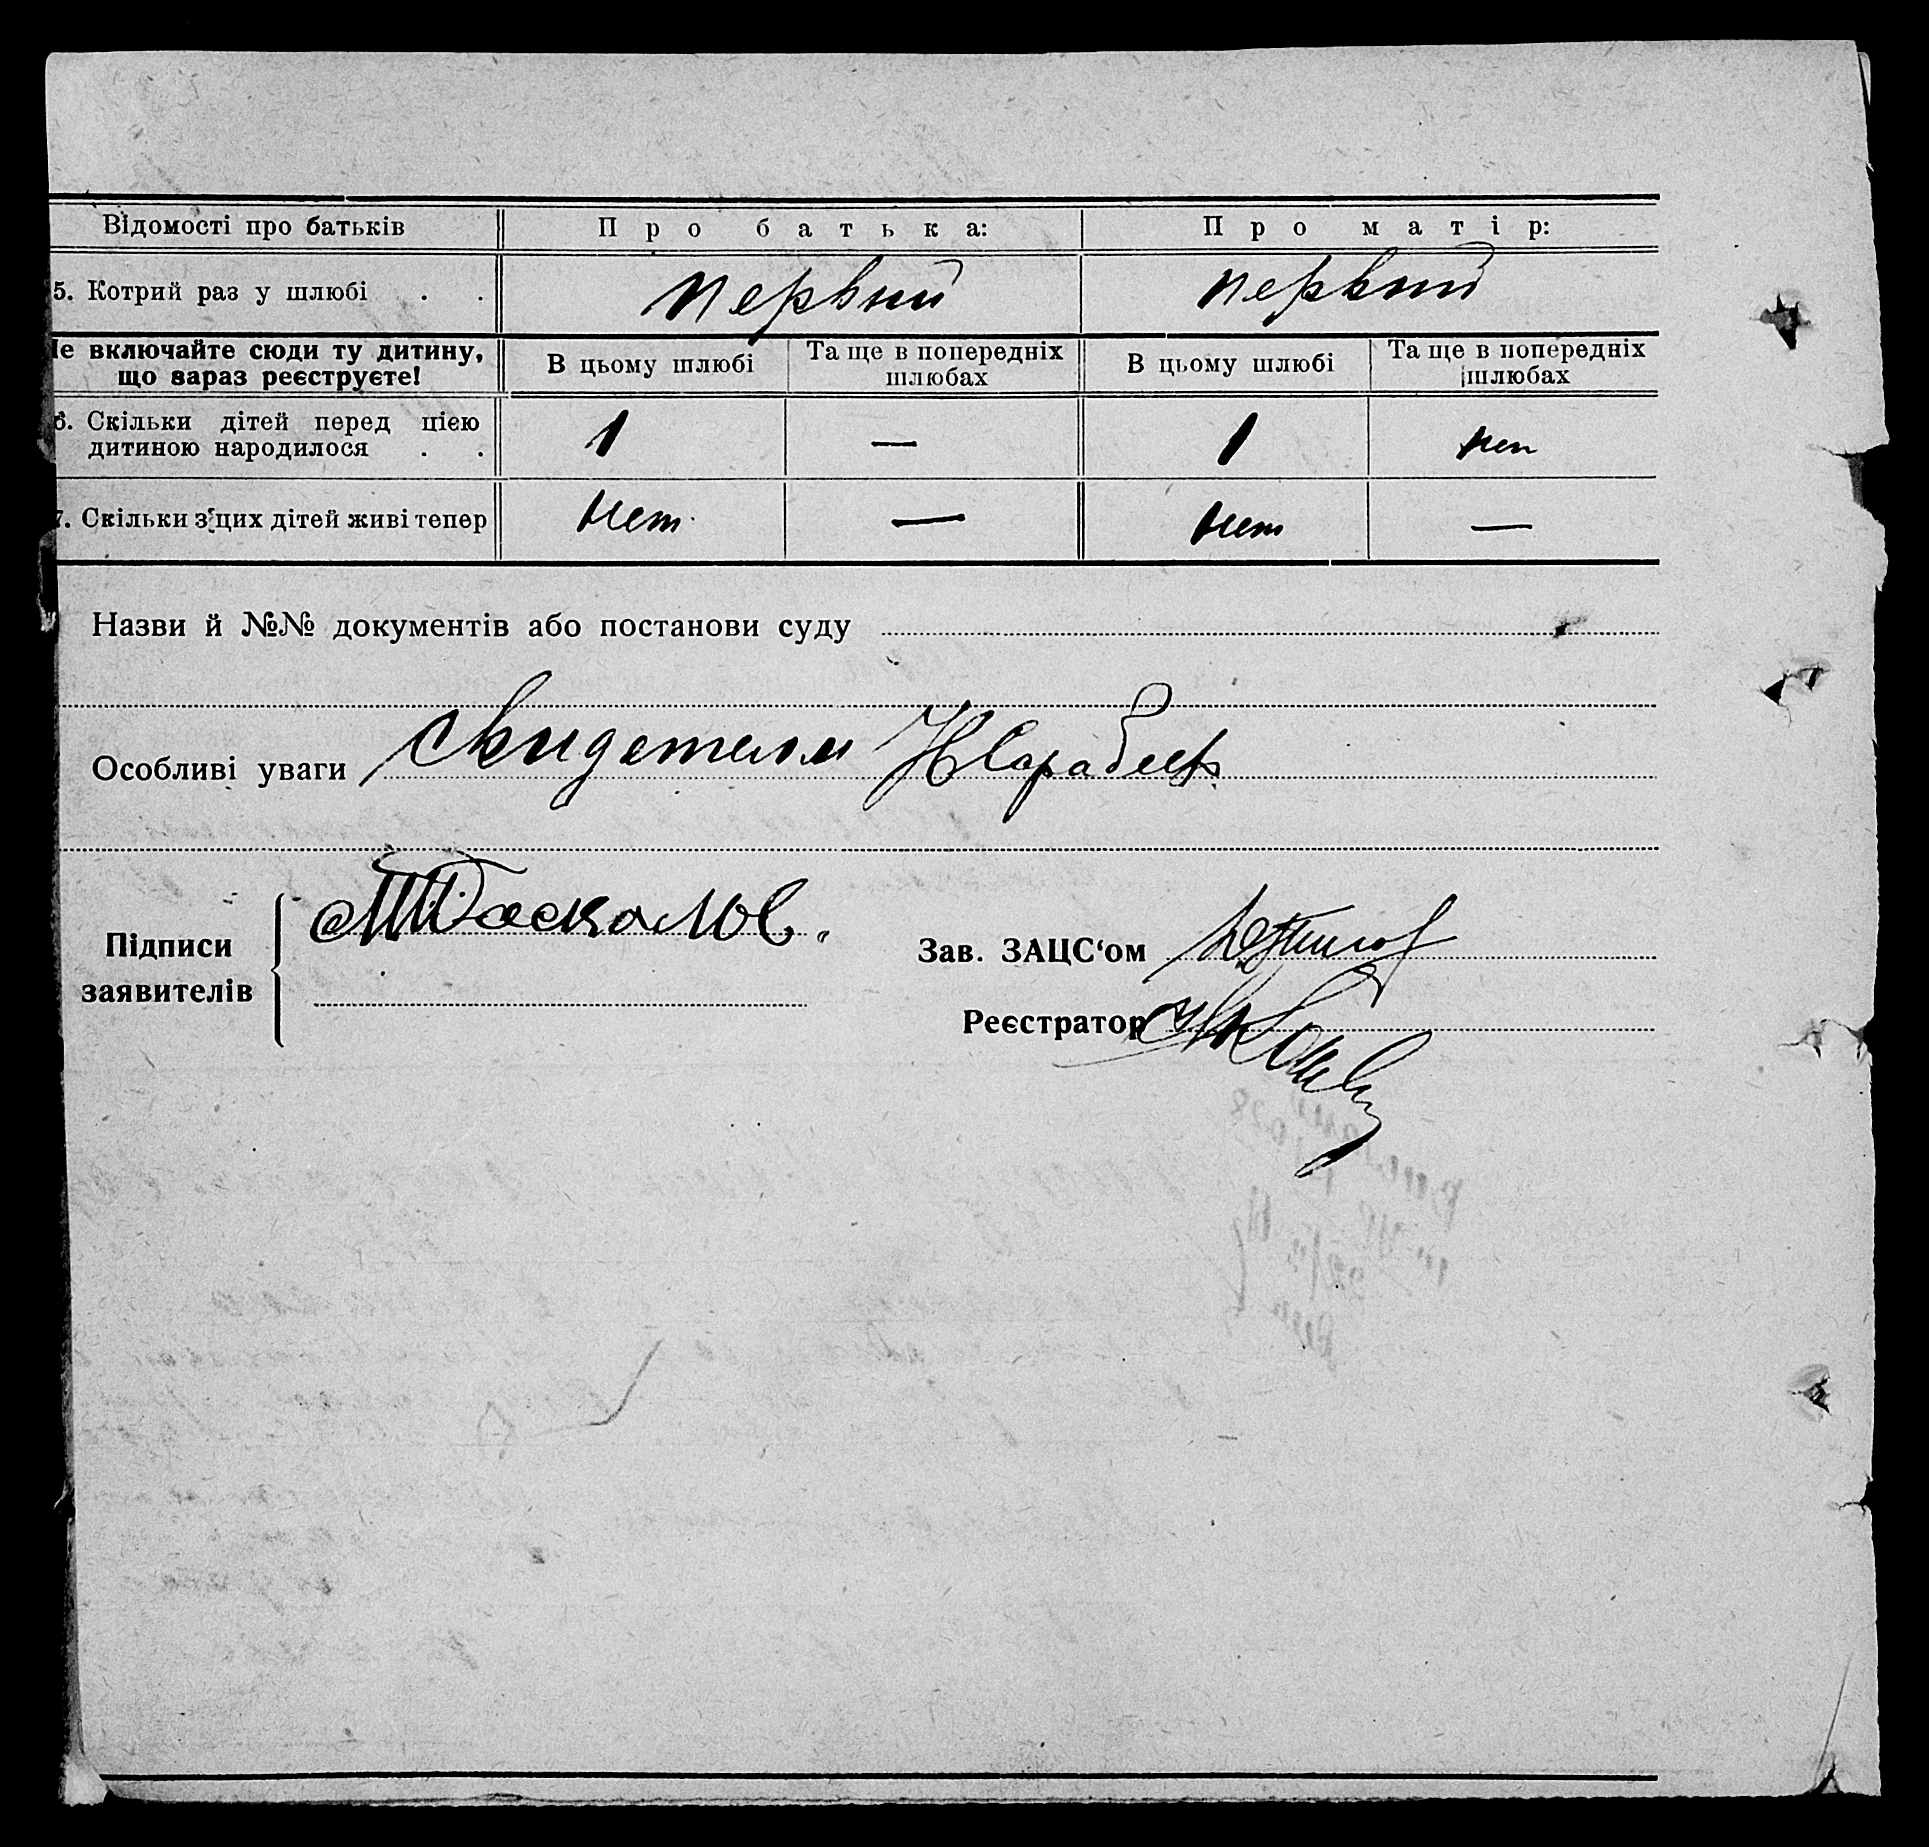 Відомості про батьків Про батька: Про матір:
5. Котрий раз у шлюбі . . первий первий
Не включайте сюди ту дитину, що зараз реєструєте!
В цьому шлюбі Та ще в попередніх шлюбах В цьому шлюбі Та ще в попередніх шлюбах
6. Скільки дітей перед цією
дитиною народилося . . 1 — 1 нет
7. Скільки з цих дітей живі тепер нет — нет —
Назви й №№ документів або постанови суду
Особливі уваги свидетели
Підписи
заявителів
Зав. ЗАЦС‘ом
Реєстратор